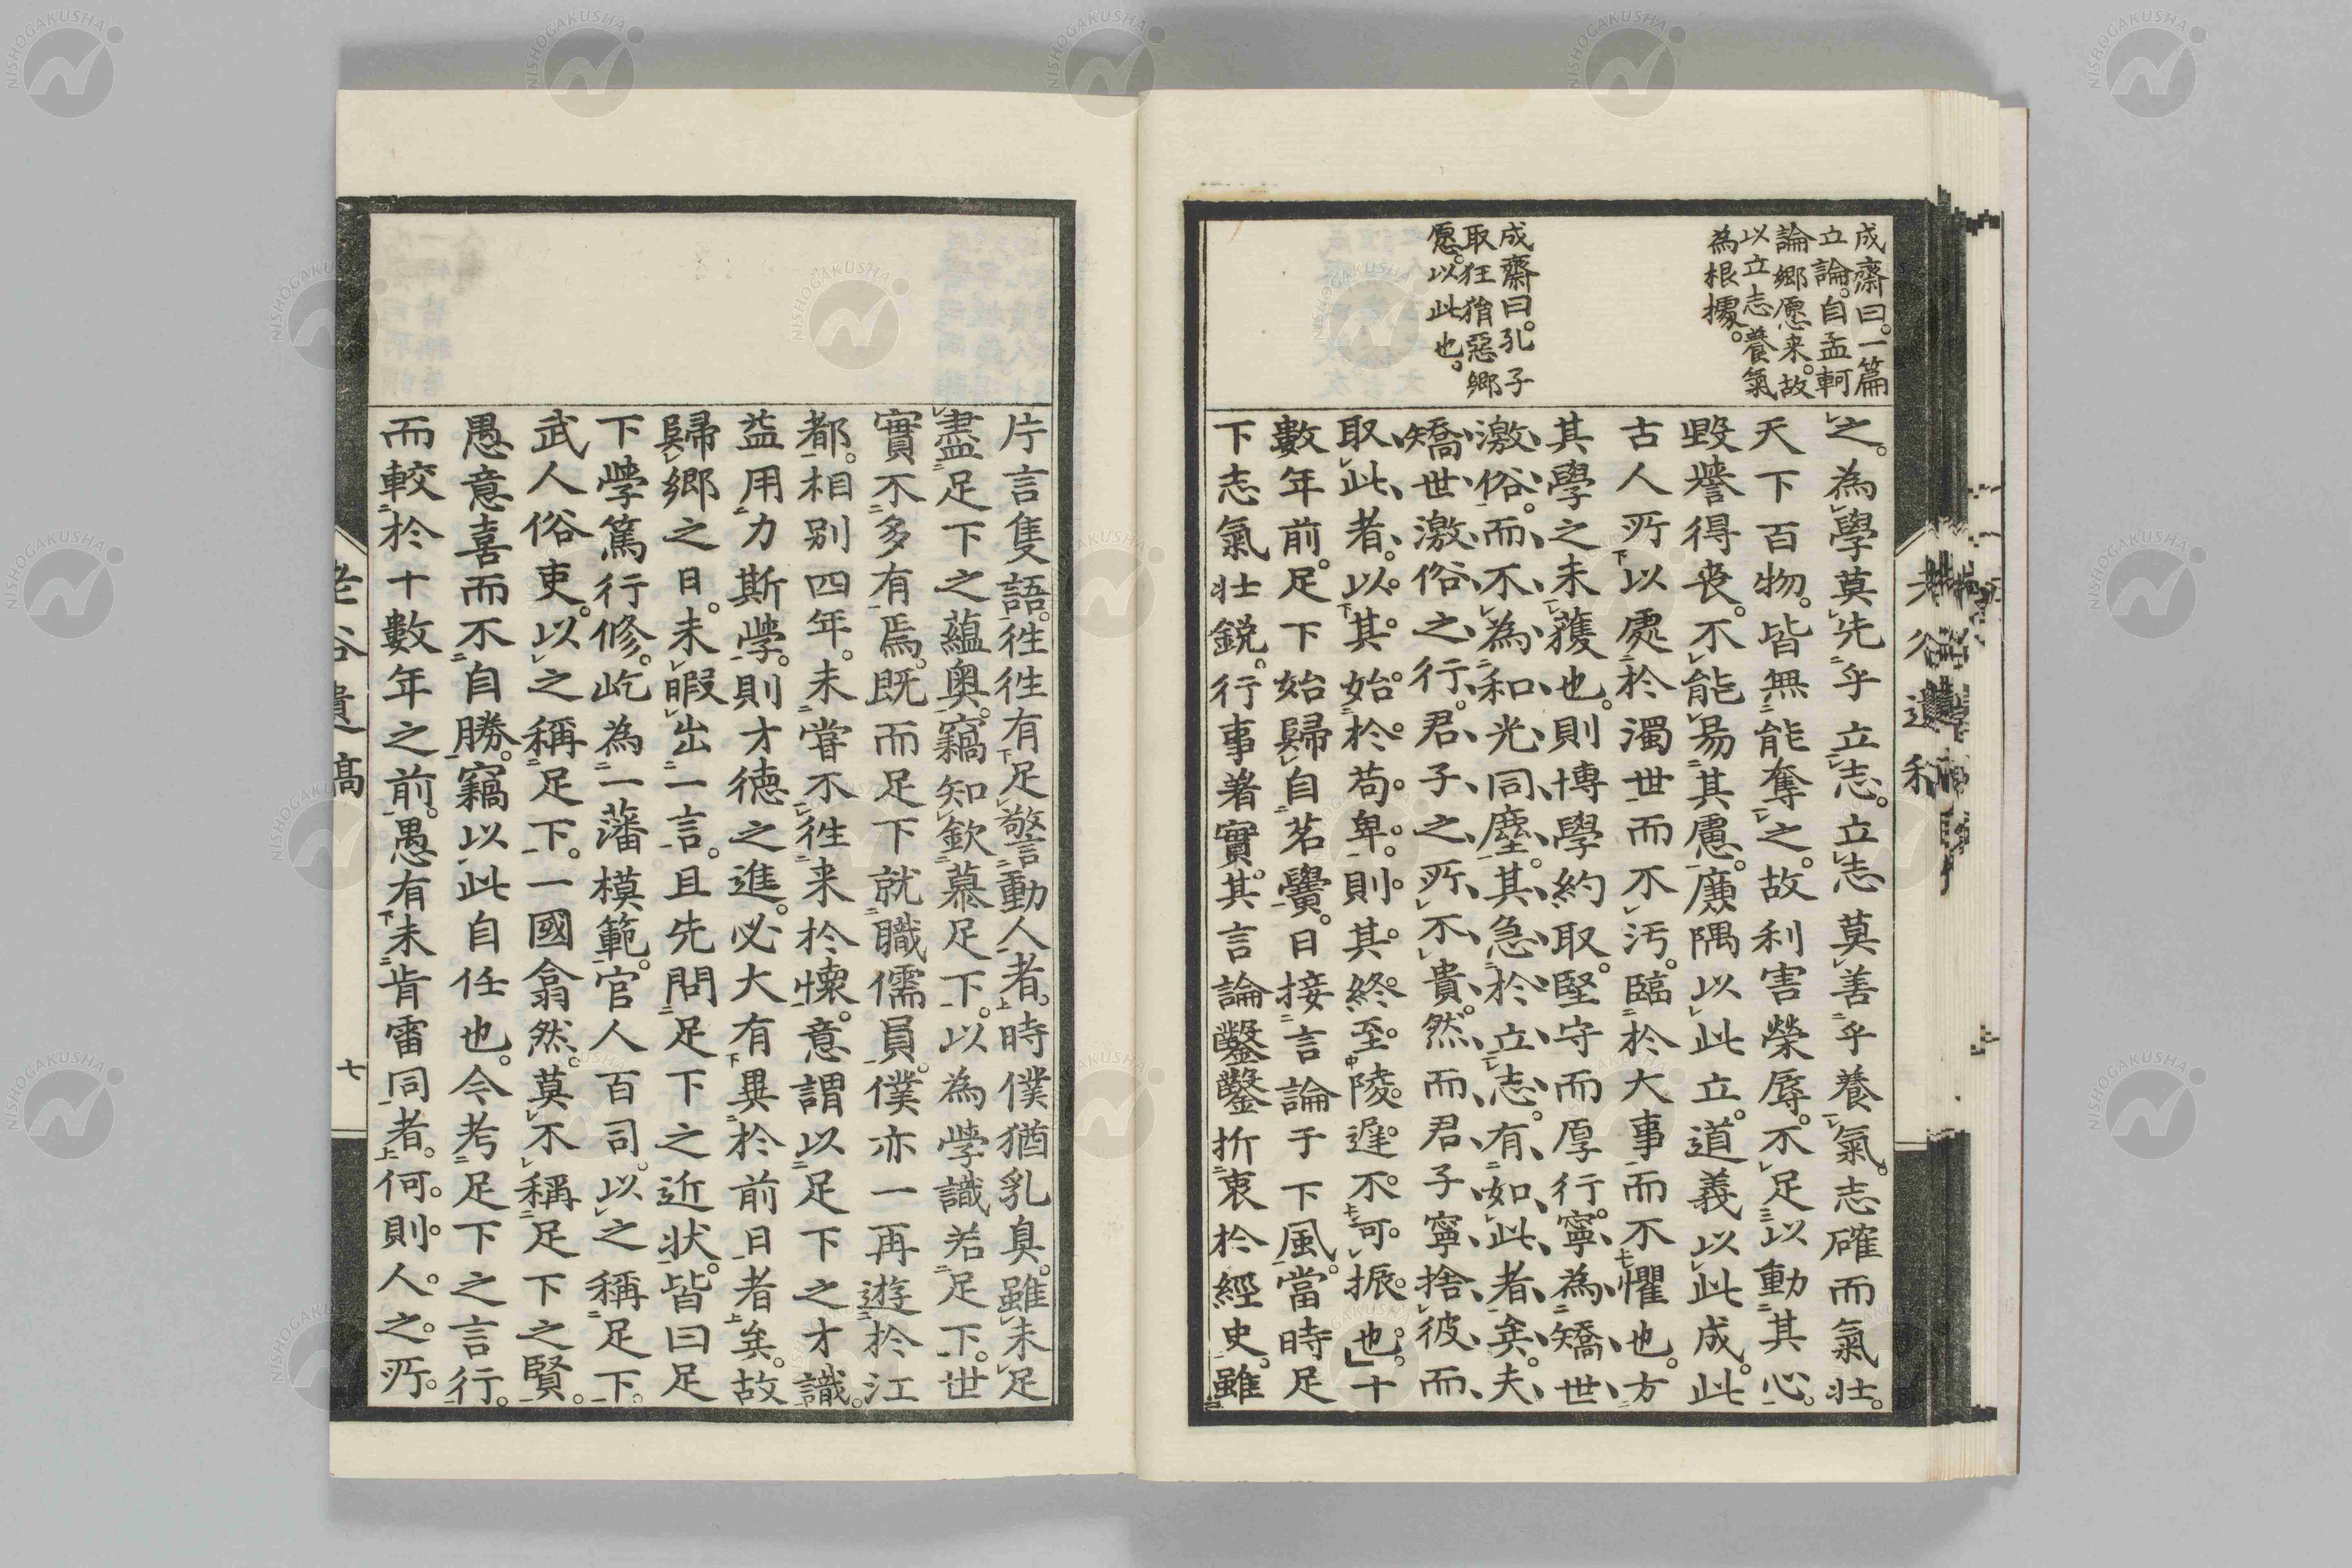 成齋曰。一篇
立論。自孟軻
論鄉愿来。故
以立志養氣
為根據。
成齋曰。孔子
取狂狷惡鄉
愿。以此也。
之。為學莫先乎立志。立志莫善乎養氣。志確而氣壯。
天下百物。皆無能奪之。故利害榮辱。不足以動其心。
毀譽得喪。不能易其慮。廉隅以此立。道義以此成。此
古人所以處於濁世而不汚。臨於大事而不懼也。方
其學之未獲也。則博學約取。堅守而厚行。寧為矯世
激俗。而不為和光同塵。其急於立志。有如此者矣。夫
矯世激俗之行。君子之所不貴。然而君子寧捨彼而
取此者。以其始於苟卑。則其終至陵遲不可振也。」十
數年前。足下始歸自茗黌。日接言論于下風。當時足
下志氣壯銳。行事著實。其言論鑿鑿折衷於經史。雖
片言隻語。徃徃有足警動人者。時僕猶乳臭。雖未足
盡足下之蘊奥。竊知欽慕足下。以為學識若足下。世
實不多有焉。既而足下就職儒員。僕亦一再遊於江
都。相別四年。未嘗不徃来於懷。意謂以足下之才識。
益用力斯學。則才德之進。必大有異於前日者矣。故
歸鄉之日。未暇出一言。且先問足下之近狀。皆曰足
下學篤行修。屹為一藩模範。官人百司。以之稱足下。
武人俗吏。以之稱足下。一國翕然。莫不稱足下之賢。
愚意喜而不自勝。竊以此自任也。今考足下之言行。
而較於十數年之前。愚有未肯雷同者。何則人之所
老谷遺稿
七
NISHOGAKUSHA